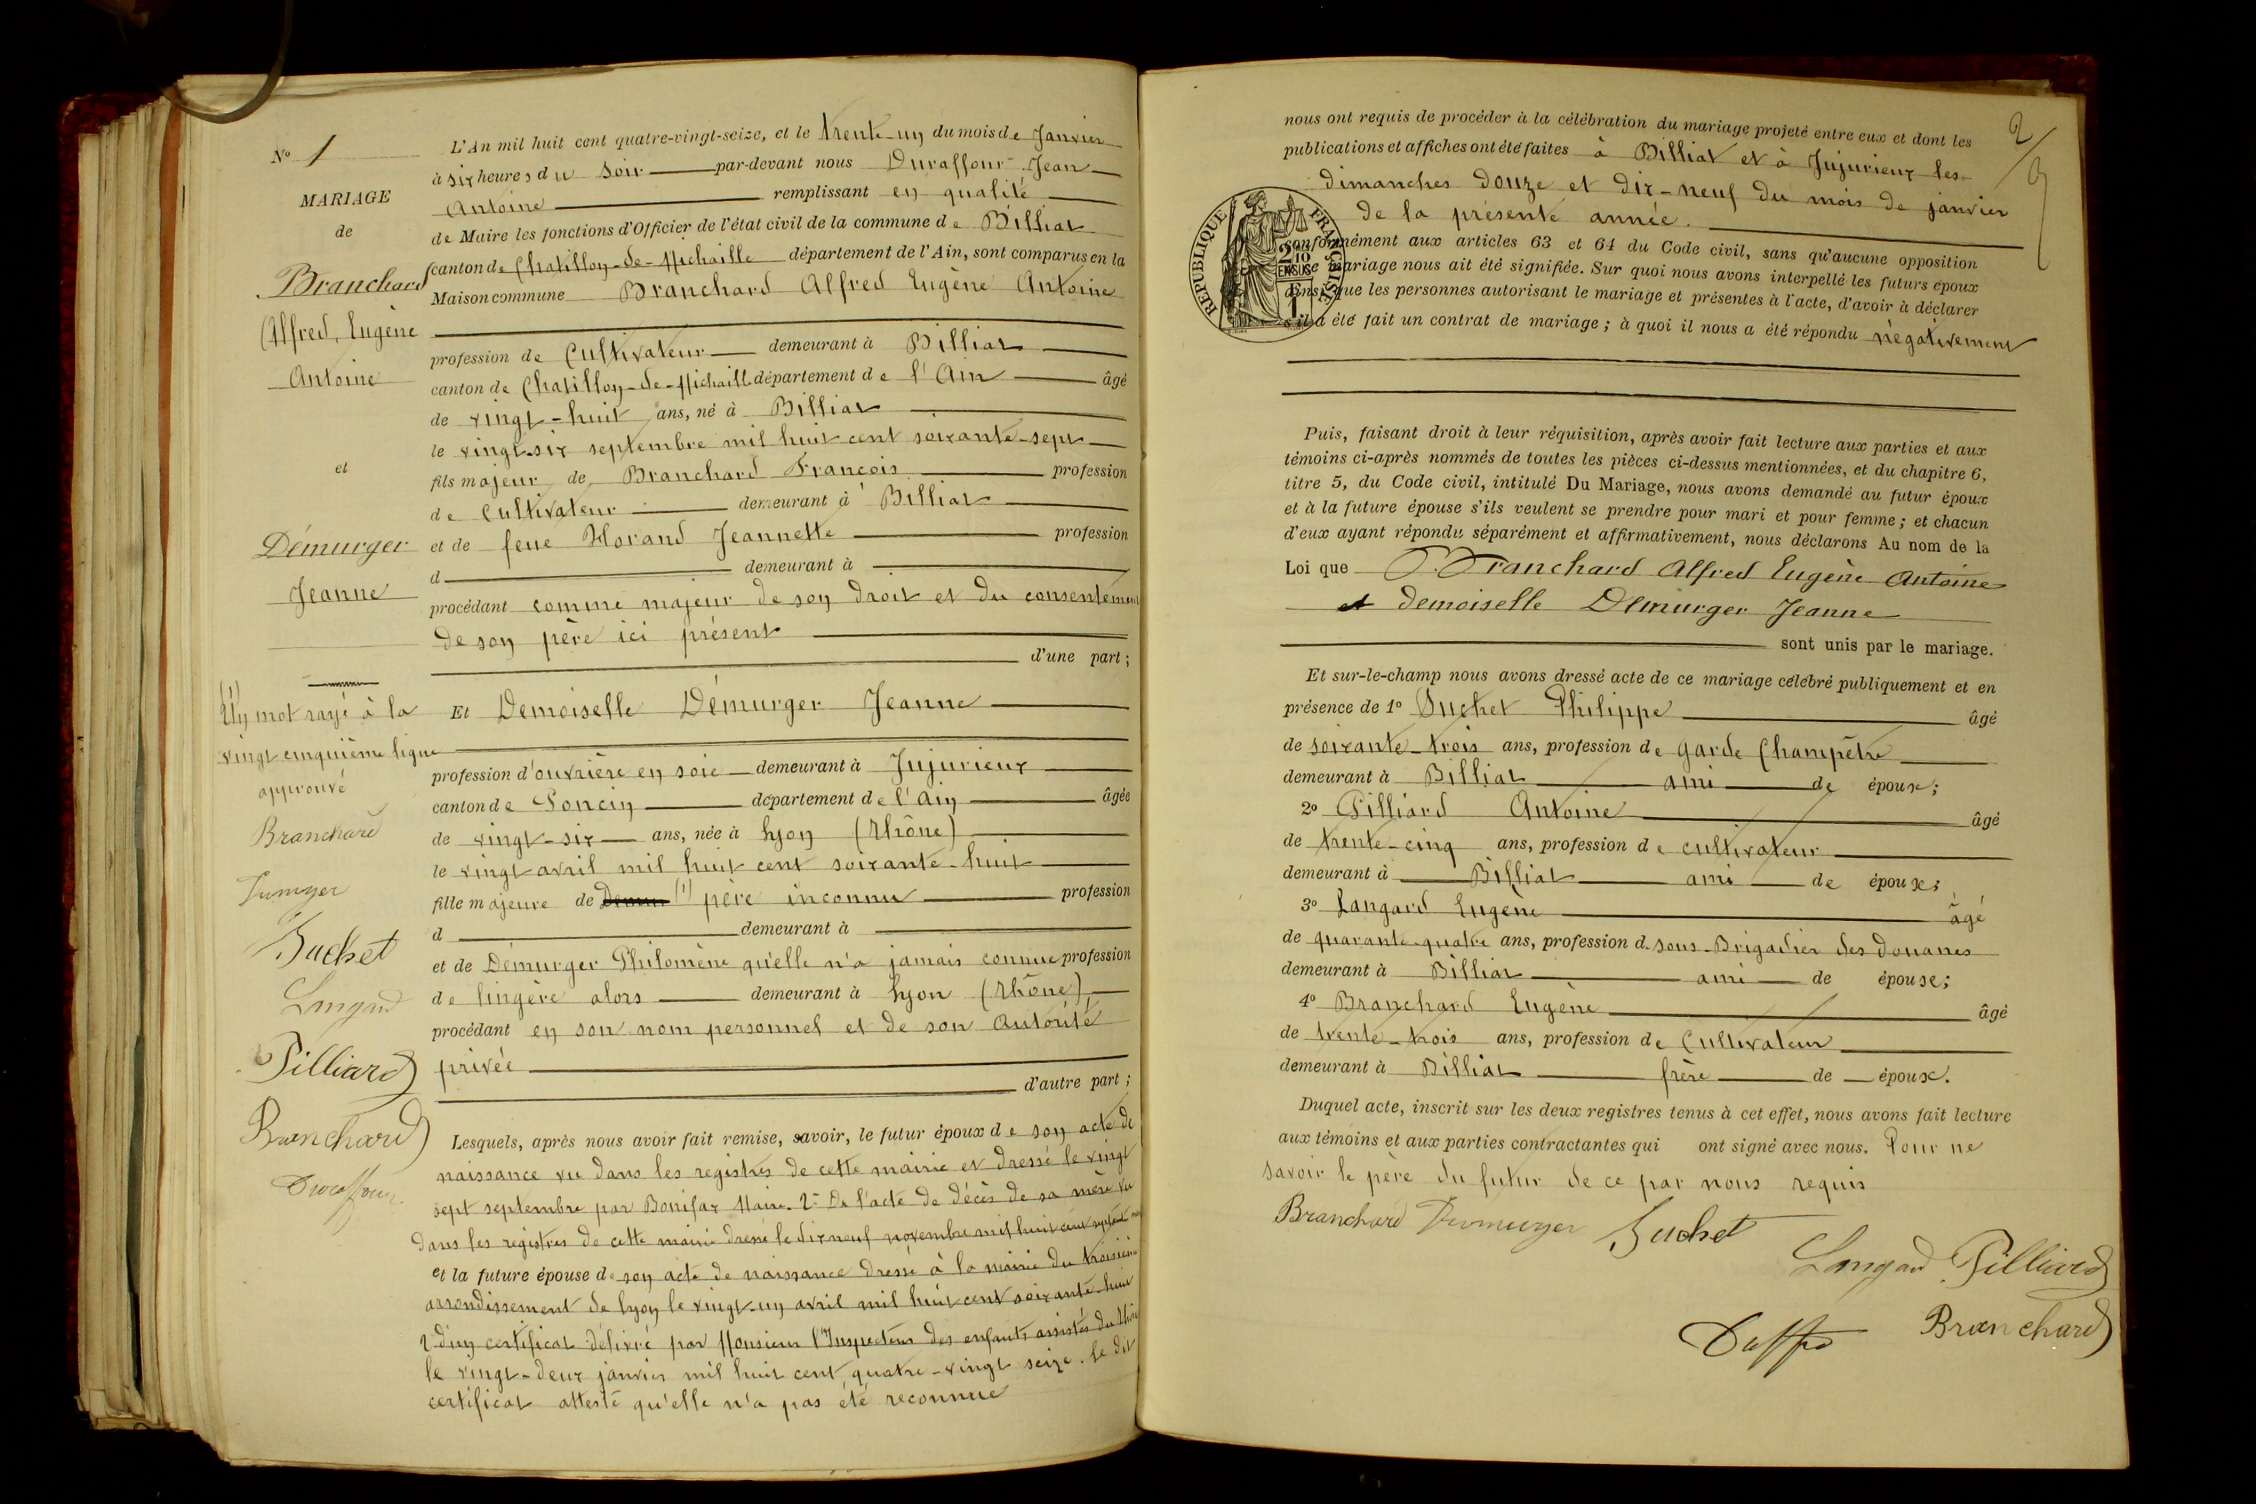 N° 1
MARIAGE
de
Branchard
Alfred, Eugène
Antoine
et
Démurger
Jeanne
(1) Un mot rayé à la
vingt cinquième ligne
approuvé
Branchard
Dumurger
Suchet
Langard
Pilliard
Branchard
Duraffour
L'An mil huit cent quatre-vingt-seize, et le trente-un du mois de Janvier
à six heures du soir par-devant nous Duraffour Jean
Antoine remplissant en qualité
de Maire les fonctions d'Officier de l'état civil de la commune de Billiat
canton de Chatillon-de-Michaille département de l'Ain, sont comparus en la
Maison commune Branchard Alfred Eugène Antoine
profession de Cultivateur demeurant à Billiat
canton de Chatillon-de-Michaill département de l'Ain âgé
de vingt-huit ans, né à Billiat
le vingt-six septembre mil huit cent soixante-sept
fils majeur de Branchard François profession
de Cultivateur demeurant à Billiat
et de feue Morand Jeannette profession
d demeurant à
procédant comme majeur de son droit et du consentement
de son père ici présent
d'une part;
Et Demoiselle Démurger Jeanne
profession d'ouvrière en soie demeurant à Jujurieux
canton de Poncin département de l'Ain âgée
de vingt-six ans, née à Lyon (Rhône)
le vingt avril mil huit cent soixante-huit
fille majeure de (1) père inconnu profession
d demeurant à
et de Démurger Philomène qu'elle n'a jamais connue profession
de lingère alors demeurant à Lyon (Rhône),
procédant en son nom personnel et de son Autorité
privée
d'autre part;
Lesquels, après nous avoir fait remise, savoir, le futur époux de son acte de
naissance vu dans les registres de cette mairie et dressé le vingt
sept septembre par Bonifax Maire. 2° De l'acte de décès de sa mère vu
dans les registres de cette mairie dressé le dix neuf novembre mil huit cent
et la future épouse de son acte de naissance dressé à la mairie du troisième
arrondissement de Lyon le vingt-un avril mil huit cent soixante-huit
2° d'un certificat délivré par Monsieur l'Inspecteur des enfants assistés du Rhône
le vingt-deux janvier mil huit cent quatre-vingt seize. Le dit
certificat atteste qu'elle n'a pas été reconnue
2
nous ont requis de procéder à la célébration du mariage projeté entre eux et dont les
publications et affiches ont été faites à Billiat et à Jujurieux les
dimanches douze et dix-neuf du mois de janvier
de la présente année.
RÉPUBLIQUE FRANÇAISE
2/10 EN SUS
conformément aux articles 63 et 64 du Code civil, sans qu'aucune opposition
ce mariage nous ait été signifiée. Sur quoi nous avons interpellé les futurs époux
ainsi que les personnes autorisant le mariage et présentes à l'acte, d'avoir à déclarer
s'il a été fait un contrat de mariage; à quoi il nous a été répondu négativement
Puis, faisant droit à leur réquisition, après avoir fait lecture aux parties et aux
témoins ci-après nommés de toutes les pièces ci-dessus mentionnées, et du chapitre 6,
titre 5, du Code civil, intitulé Du Mariage, nous avons demandé au futur époux
et à la future épouse s'ils veulent se prendre pour mari et pour femme; et chacun
d'eux ayant répondu séparément et affirmativement, nous déclarons Au nom de la
Loi que Branchard Alfred Eugène Antoine
et demoiselle Démurger Jeanne
sont unis par le mariage.
Et sur-le-champ nous avons dressé acte de ce mariage célébré publiquement et en
présence de 1° Suchet Philippe âgé
de soixante-trois ans, profession de garde Champêtre
demeurant à Billiat ami de époux;
2° Pilliard Antoine âgé
de trente-cinq ans, profession de cultivateur
demeurant à Billiat ami de époux;
3° Langard Eugène âgé
de quarante-quatre ans, profession d. sous-Brigadier des douanes
demeurant à Billiat ami de épouse;
4° Branchard Eugène âgé
de trente-trois ans, profession de Cultivateur
demeurant à Billiat frère de époux.
Duquel acte, inscrit sur les deux registres tenus à cet effet, nous avons fait lecture
aux témoins et aux parties contractantes qui ont signé avec nous. Pour ne
savoir le père du futur de ce par nous requis
Branchard Dumurger Suchet
Langard Pilliard
Branchard